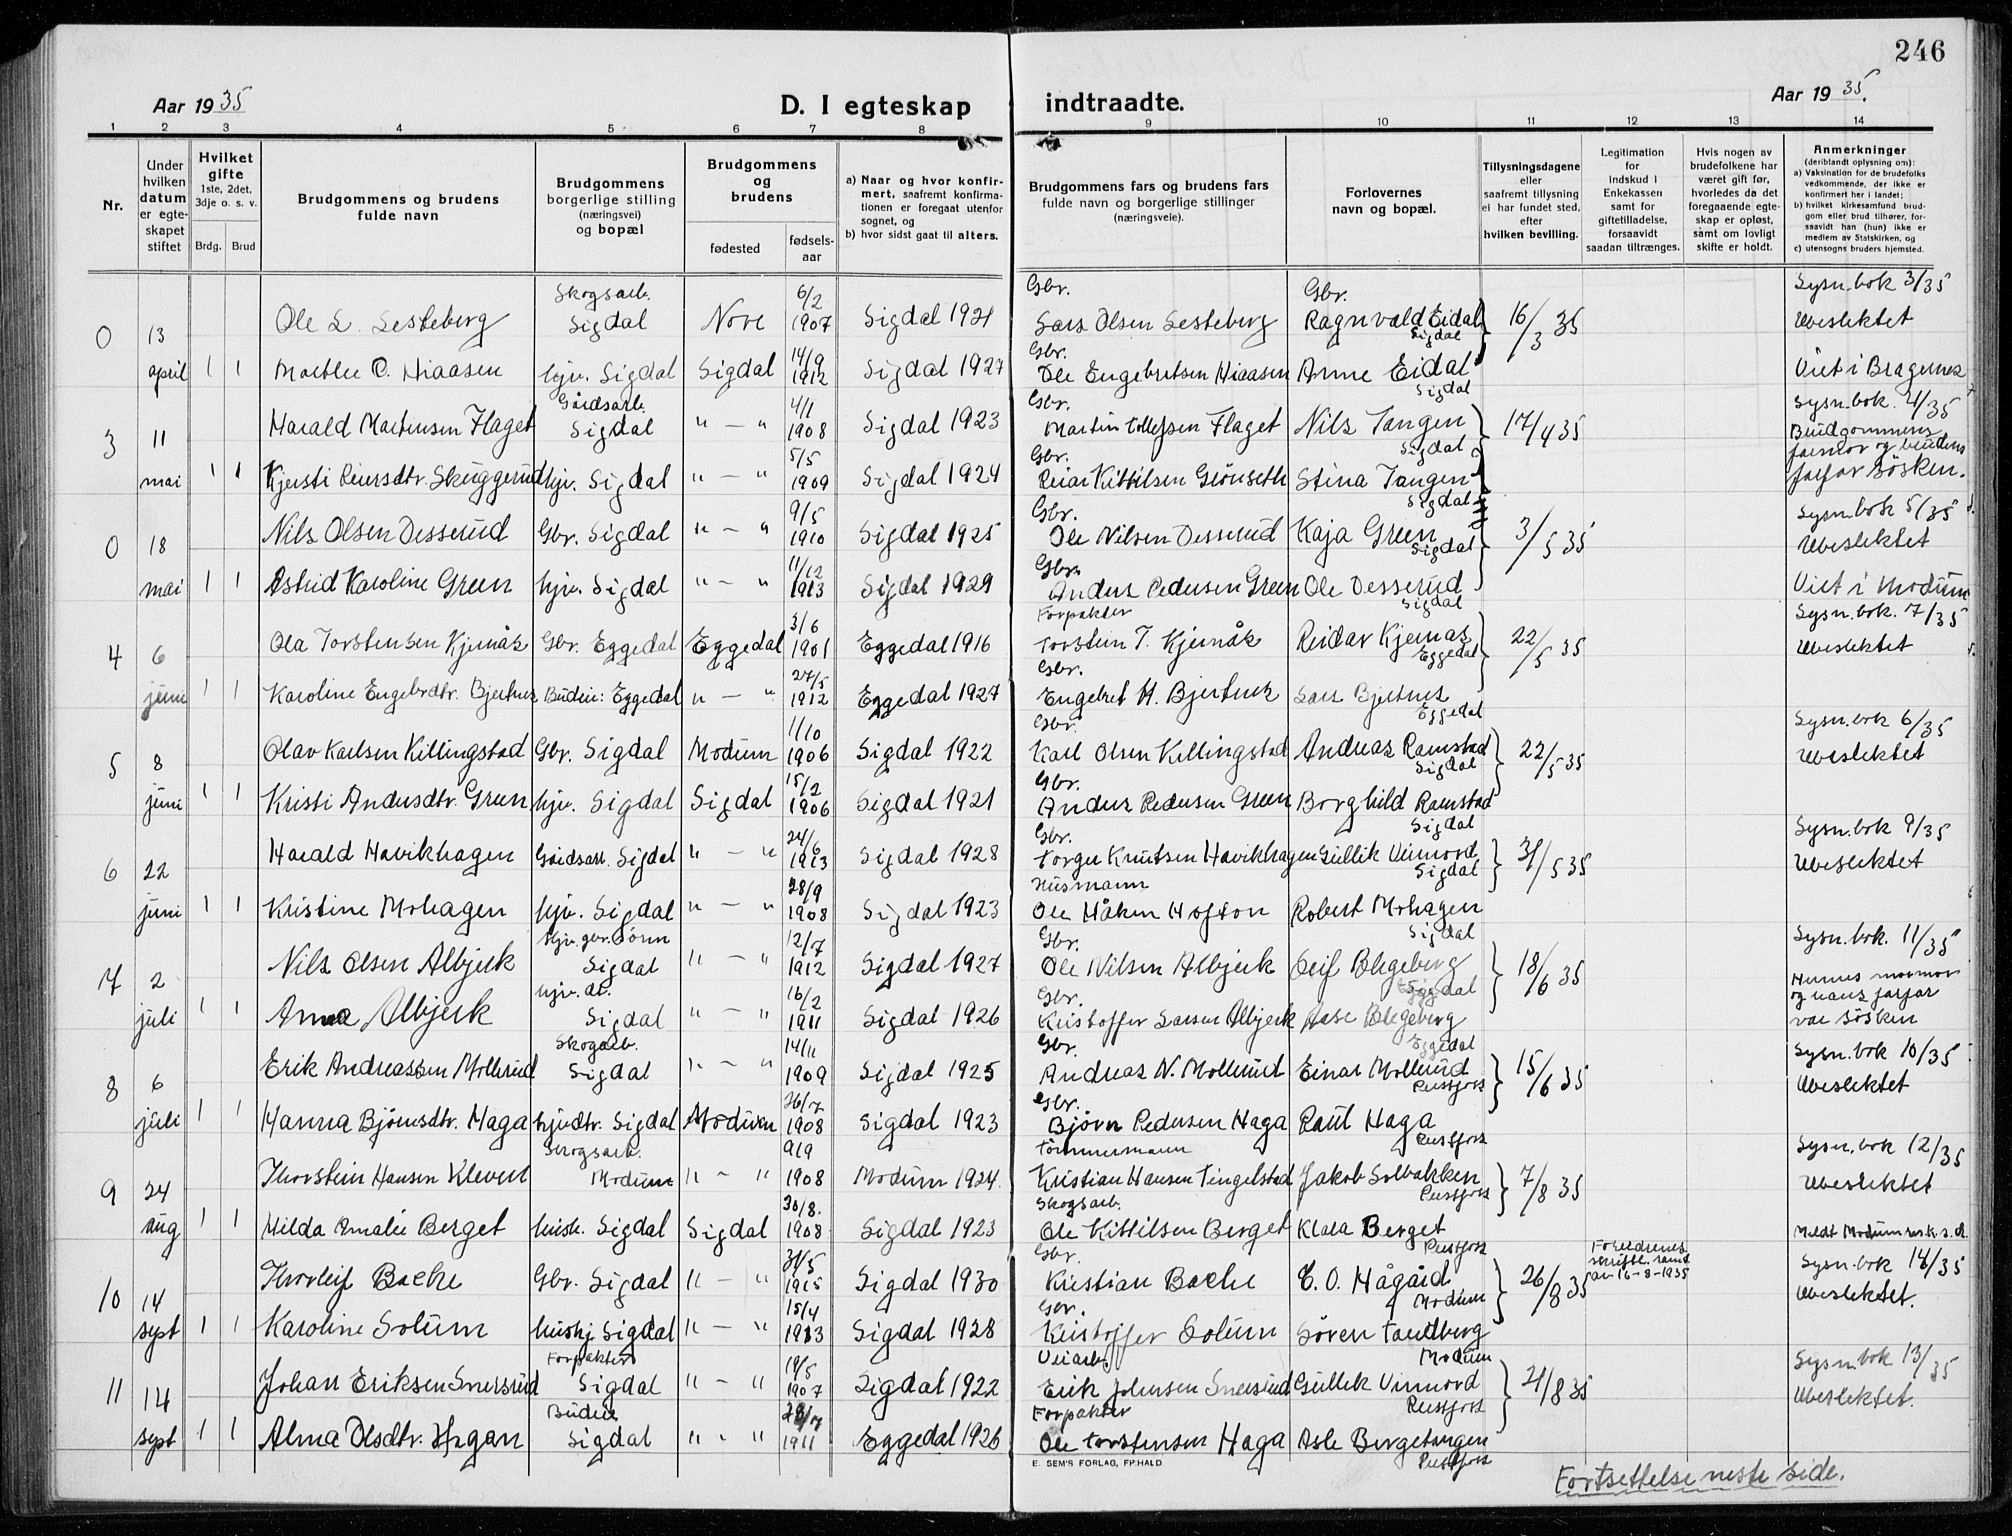 246
Aar 1935
D. I egteskap
indtraadte.
Aar 1935.
1 2 3 4 5 6 7 8 9 10 11 12 13 14
Nr.
Under hvilken datum er egteskapet stiftet
Hvilket gifte
1ste, 2det, 3dje o. s. v.
Brdg. Brud
Brudgommens og brudens
fulde navn
Brudgommens
borgerlige stilling
(næringsvei)
og bopæl
Brudgommens
og
brudens
fødested
fødsels-
aar
a) Naar og hvor konfir-
mert, saafremt konfirma-
tionen er foregaat utenfor
sognet, og
b) hvor sidst gaat til alters.
Brudgommens fars og brudens fars
fulde navn og borgerlige stillinger
(næringsveie).
Forlovernes
navn og bopæl.
Tillysningsdagene
eller
saafremt tillysning
ei har fundet sted,
efter
hvilken bevilling.
Legitimation
for
indskud i
Enkekassen
samt for
giftetilladelse,
forsaavidt
saadan tiltrænges.
Hvis nogen av
brudefolkene har
været gift før,
hvorledes da det
foregaaende egte-
skap er opløst,
samt om lovligt
skifte er holdt.
Anmerkninger
(deriblandt oplysning om):
a) Vaksination for de brudefolks
vedkommende, der ikke er
konfirmert her i landet;
b) hvilket kirkesamfund brud-
gom eller brud tilhører, for-
saavidt han (hun) ikke er
medlem av Statskirken, og
c) utensogns bruders hjemsted.
0 13 april 1 1
Ole L. Lesteberg Skogsarb. Sigdal Nore 6/2 1907 Sigdal 1921 Gbr. Lars Olsen Lesteberg Gbr. Ragnvald Eidal Sigdal 16/3 35 Lysn.bok 3/35 Ubeslektet
O. Hiaasen hjv. Sigdal Sigdal 14/9 1912 Sigdal 1927 Gbr. Ole Engebretsen Hiaasen Anne Eidal Sigdal Viet i Bragernes
3 11 mai 1 1
Harald Martinsen Flaget Gårdsarb. Sigdal " — " 4/1 1908 Sigdal 1923 Gbr. Martin Tollefsen Flaget Nils Tangen Sigdal 17/4 35 Lysn.bok. 4/35 Brudgommens farmor og brudens farfar søsken.
Kjersti Reiersdtr. Skuggerud hjv. Sigdal " — " 5/5 1909 Sigdal 1924 Gbr. Reiar Kittilsen Grønseth Stina Tangen Sigdal
0 18 mai 1 1
Nils Olsen Desserud Gbr. Sigdal " — " 9/5 1910 Sigdal 1925 Gbr. Ole Nilsen Desserud Kaja Green Sigdal 3/5 35 Lysn.bok 5/35 Ubeslektet
Astrid Karoline Green hjv. Sigdal " — " 11/12 1913 Sigdal 1929 Gbr. Anders Pedersen Green Ole Desserud Sigdal Viet i Modum
4 6 juni 1 1
Ola Torstensen Kjemås Gbr. Eggedal Eggedal 3/6 1901 Eggedal 1916 Forpakter Torstein T. Kjernås Reidar Kjernås Eggedal 22/5 35 Lysn.bok. 7/35 Ubeslektet
Karoline Engebrdtr. Bjertnes Budeie: Eggedal " — " 27/5 1912 Eggedal 1927 Gbr. Engebret H. Bjertnes Lars Bjertnes Eggedal
5 8 juni 1 1
Olav Karlsen Killingstad Gbr. Sigdal Modum 1/10 1906 Sigdal 1922 Gbr. Karl Olsen Killingstad Andreas Ramstad Sigdal 22/5 35 Lysn.bok 6/35 Ubeslektet
Kristi Andersdtr. Green hjv. Sigdal Sigdal 15/2 1906 Sigdal 1921 Gbr. Anders Pedersen Green Borghild Ramstad Sigdal
6 22 juni 1 1
Harald Havikhagen Gårdsarb. Sigdal " — " 24/6 1913 Sigdal 1928 Gbr. Torger Knutsen Havikhagen Gullik Vinnord Sigdal 31/5 35 Lysn.bok 9/35 Ubeslektet
Kristine Mohagen hjv. Sigdal " — " 28/9 1908 Sigdal 1923 Husmann Ole Håken Hofton Robert Mohagen Sigdal
7 2 juli 1 1
Nils Olsen Albjerk Hjv. gbr. sønn Sigdal " — " 12/7 1912 Sigdal 1927 Gbr. Ole Nilsen Albjerk Leif Blegeberg Eggedal 18/6 35 Lysn.bok. 11/35 Hennes mormor og hans farfar var søsken
Anna Albjerk hjv. dt. Sigdal " — " 16/2 1911 Sigdal 1926 Gbr. Kristoffer Larsen Albjerk Aase Blegeberg Eggedal
8 6 juli 1 1
Erik Andreassen Mollerud Skogarb. Sigdal " — " 14/11 1909 Sigdal 1925 Gbr. Andreas N. Mollerud Einar Mollerud Prestfoss 15/6 35 Lysn.bok 10/35 Ubeslektet
Hanna Bjørnsdtr. Haga hjvdtr. Sigdal Modum 26/7 1908 Sigdal 1923 Gbr. Bjørn Pedersen Haga Paul Haga Prestfoss
9 24 aug 1 1
Thorstein Hansen Kleven Skogsarb. Modum " — " 9/9 1908 Modum 1924. Tømmermann Kristian Hansen Tingelstad Jakob Solbakken Prestfoss 7/8 35 Lysn.bok 12/35 Ubeslektet
Hilda Amalie Berget hush. Sigdal Sigdal 30/8. 1908 Sigdal 1923 Skogsarb. Ole Kittilsen Berget Klara Berget Prestfoss Meldt Modum
10 14 sept 1 1
Thorleif Bache Gbr. Sigdal " — " 31/5 1915 Sigdal 1930 Gbr. Kristian Bache C. O. Hågård Modum 26/8 35 Foreldrenes skriftl. samt. av 16-8-1935 Lysn.bok 14/35 Ubeslektet.
Karoline Solum hushj Sigdal " — " 15/4 1913 Sigdal 1928 Gbr. Kristoffer Solum Søren Tandberg Modum
11 14 sept 1 1
Johan Eriksen Snersrud Forpakter Sigdal " — " 19/5 1907 Sigdal 1922 Veiarb. Erik Johnsen Snersrud Gullik Vinnord Prestfoss 21/8 35 Lysn.bok 13/35 Ubeslektet.
Alma Olsdtr. Hagan Budeie Sigdal " - " 1911 Eggedal 1926 Forpakter Ole Torstensen Haga Asle Bergetangen Prestfoss
E. SEM'S FORLAG, FP.HALD
Fortsettelse neste side.